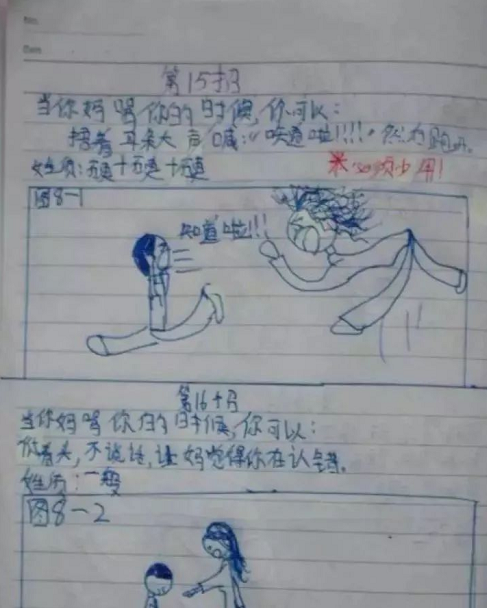 No.
Date
第15招
当你妈骂你的时候,你可以:
捂着耳朵大声喊:“知道啦!!!”然后跑。
姓质:
米必须少用!
图8-1
知道啦!!!
第16招
当你妈骂你的时候,你可以:
低着头,不说话,让妈觉得你在认错。
姓质:一般
图8-2